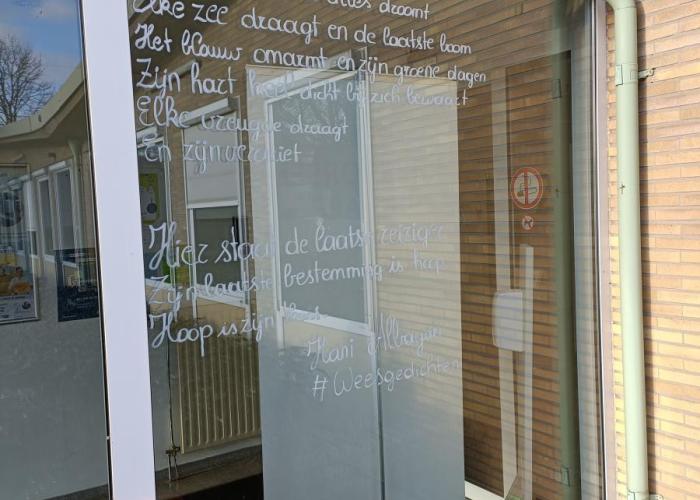 alles droomt
Elke zee draagt en de laatste boom
Het blauw omarmt en zijn groene dagen
Zijn hart heeft dicht bij zich bewaart
Elke vreugde draagt
En zijn verdriet
Hier staat de laatste reiziger
Zijn laatste bestemming is hoop
Hoop is zijn
#Weesgedichten